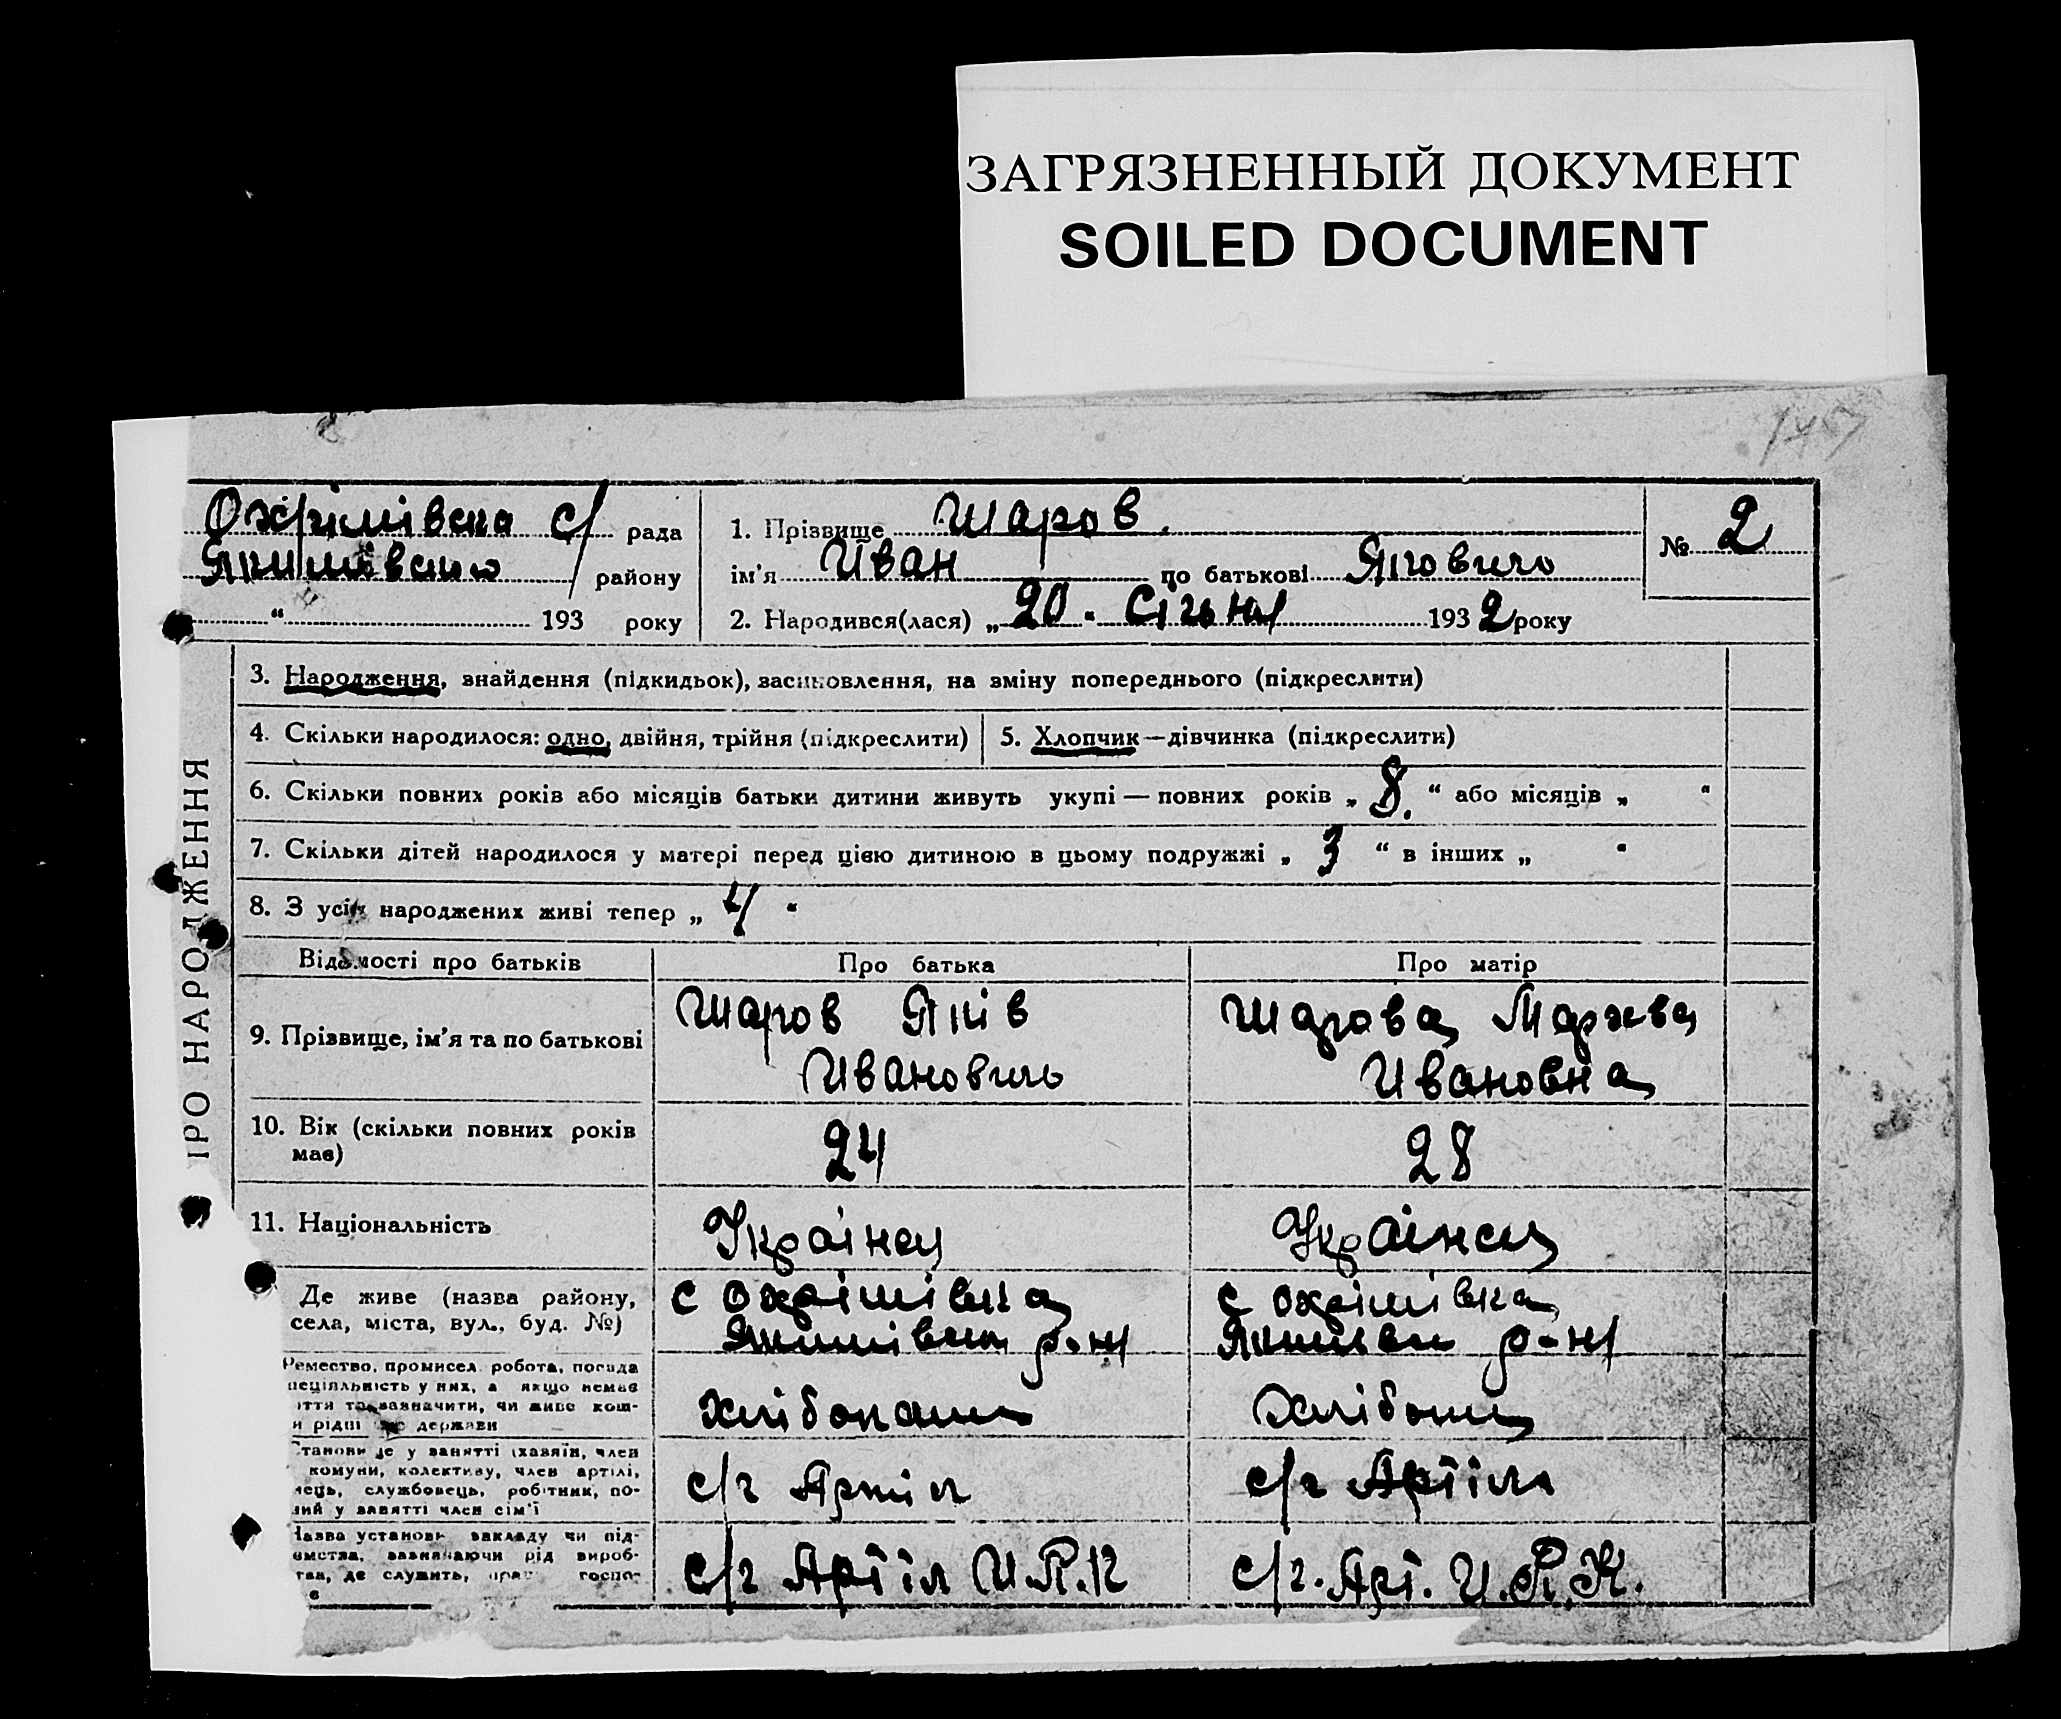 ЗАГРЯЗНЕННЫЙ ДОКУМЕНТ
SOILED DOCUMENT
Охрімівска с/ рада
району
“ 193 року
1. Прізвище Шаров
ім'я Иван по батькові
2. Народився(лася) „20 Січня 1932 року
№ 2
ПРО НАРОДЖЕННЯ
3. Народження, знайдення (підкидьок), засиновлення, на зміну попереднього (підкреслити)
4. Скільки народилося: одно, двійня, трійня (підкреслити)
5. Хлопчик—дівчинка (підкреслити)
6. Скільки повних років або місяців батьки дитини живуть укупі — повних років „ 8. “ або місяців „ “
7. Скільки дітей народилося у матері перед цією дитиною в цьому подружжі „ 3 “ в інших „ “
8. З усіх народжених живі тепер „ 4 “
Відомості про батьків
Про батька
Про матір
9. Прізвище, ім'я та по батькові
Шаров Яків
Ивановичь
Шарова
Ивановна
10. Вік (скільки повних років
має)
24
28
11. Національність
Українец
Українец
Де живе (назва району,
села, міста, вул., буд. №)
с Охрімівка
р-н
с Охрімівка
р-н
Ремество, промисел, робота, посада
у них, а якщо немає
зазначити, чи живе кош-
рідні держави
хлібопаш
у занятті (хазяїн, член
комуни, колективу, член артілі,
службовець, робітник, по-
у занятті член сім'ї
с/г Артіл
с/г Артіль
Назва установи, закладу чи під-
зазначаючи рід вироб-
де служить,
с/г Артіл И.Р.К
с/г. Арт. И.Р.К.